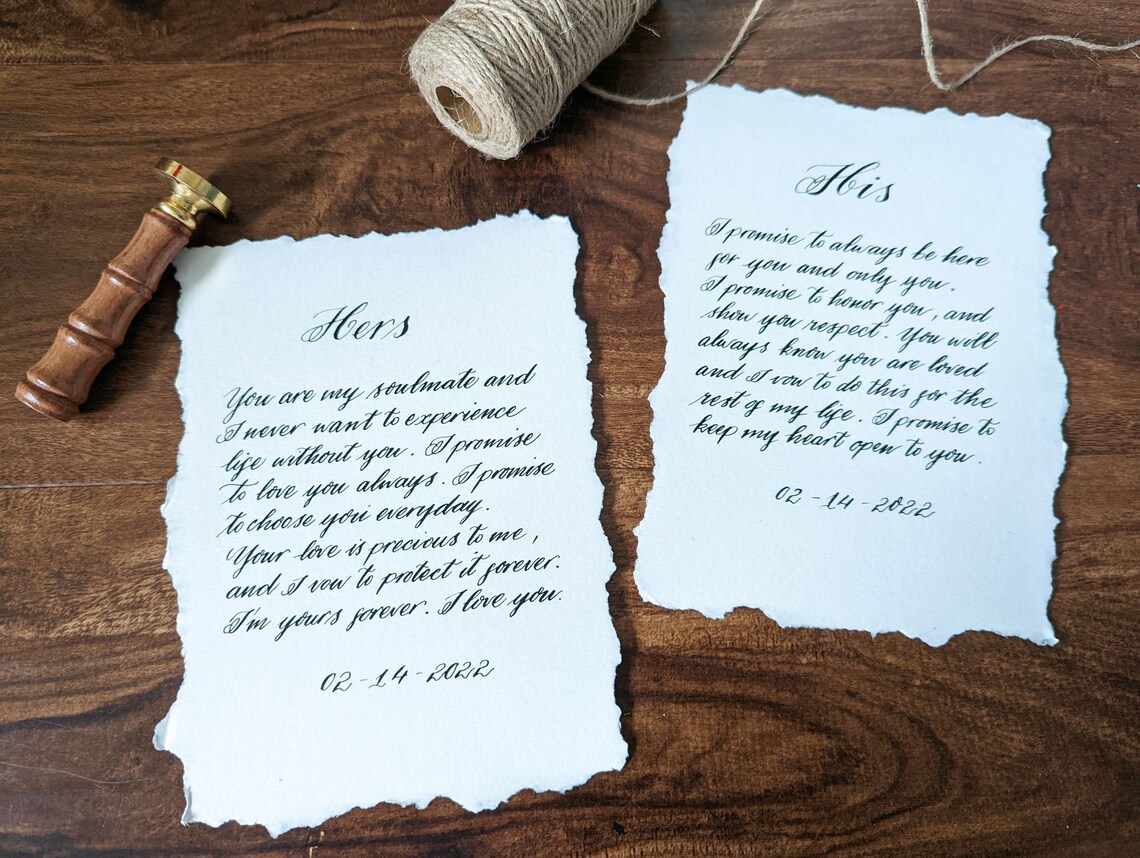 Hers
You are my soulmate and
I never want to experience
life without you. I promise
to love you always. I promise
to choose you everyday.
Your love is precious to me,
and I vow to protect it forever.
I'm yours forever. I love you.
02-14-2022
His
I promise to always be here
for you and only you.
I promise to honor you, and
show you respect. You will
always know you are loved
and I vow to do this for the
rest of my life. I promise to
keep my heart open to you.
02-14-2022